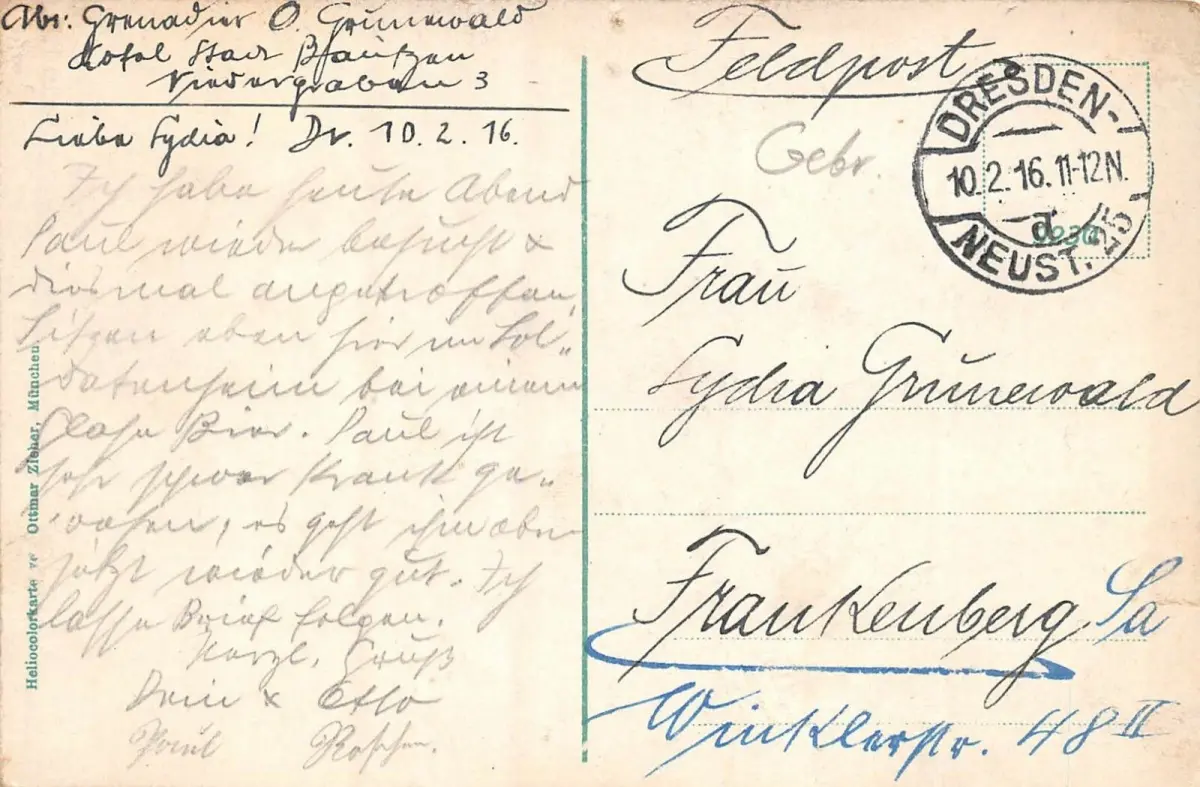 Abs: Grenadier O. Grunewald
Hotel Stadt Bautzen
Niedergraben 3
Liebe Lydia! Dr. 10.2.16.
Ich habe heute Abend
Paul wieder besucht &
diesmal angetroffen,
Sitzen eben hier im Sol„
datenheim bei einem
Glase Bier. Paul ist
sehr schwer krank ge„
wesen, es geht ihm aber
jetzt wieder gut. Ich
lasse Brief folgen.
Herzl. Gruß
Dein & Otto
Paul
Heliocolorkarte Ottmar Zieher, München
Feldpost
Gebr.
DRESDEN-
10.2.16.11-12N.
d
NEUST. 25
Frau
Lydia Grunewald
Frankenberg Sa
Winklerstr. 48 II